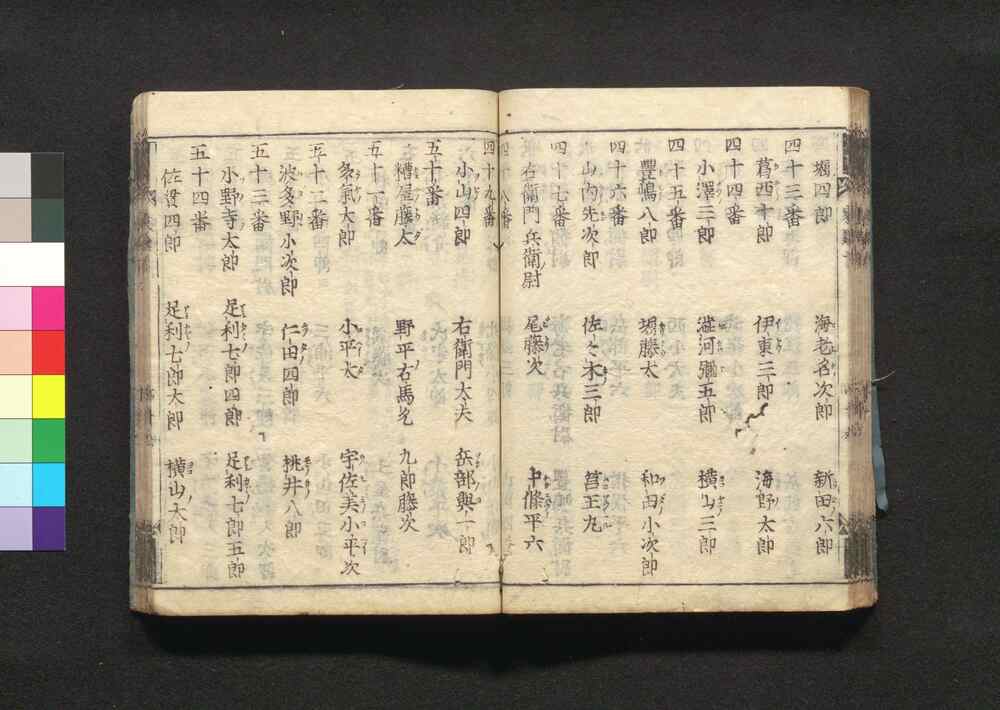 堀四郎 海老名次郎 新田六郎
四十三番
葛西十郎 伊東三郎 海野太郎
四十四番
小澤三郎 澁河彌五郎 横山三郎
四十五番
豐嶋八郎 堀藤太 和田小次郎
四十六番
山内先次郎 佐々木三郎 筥王丸
四十七番
右衛門兵衛尉 尾藤次 中條平六
四十八番
四十九番
小山四郎 右衛門大夫 岳部與一郎
五十番
糟屋藤太 野平右馬允 九郎藤次
五十一番
多氣太郎 小平太 宇佐美小平次
五十二番
波多野小次郎 仁田四郎 桃井八郎
五十三番
小野寺太郎 足利七郎四郎 足利七郎五郎
五十四番
佐貫四郎 足利七郎太郎 横山太郎